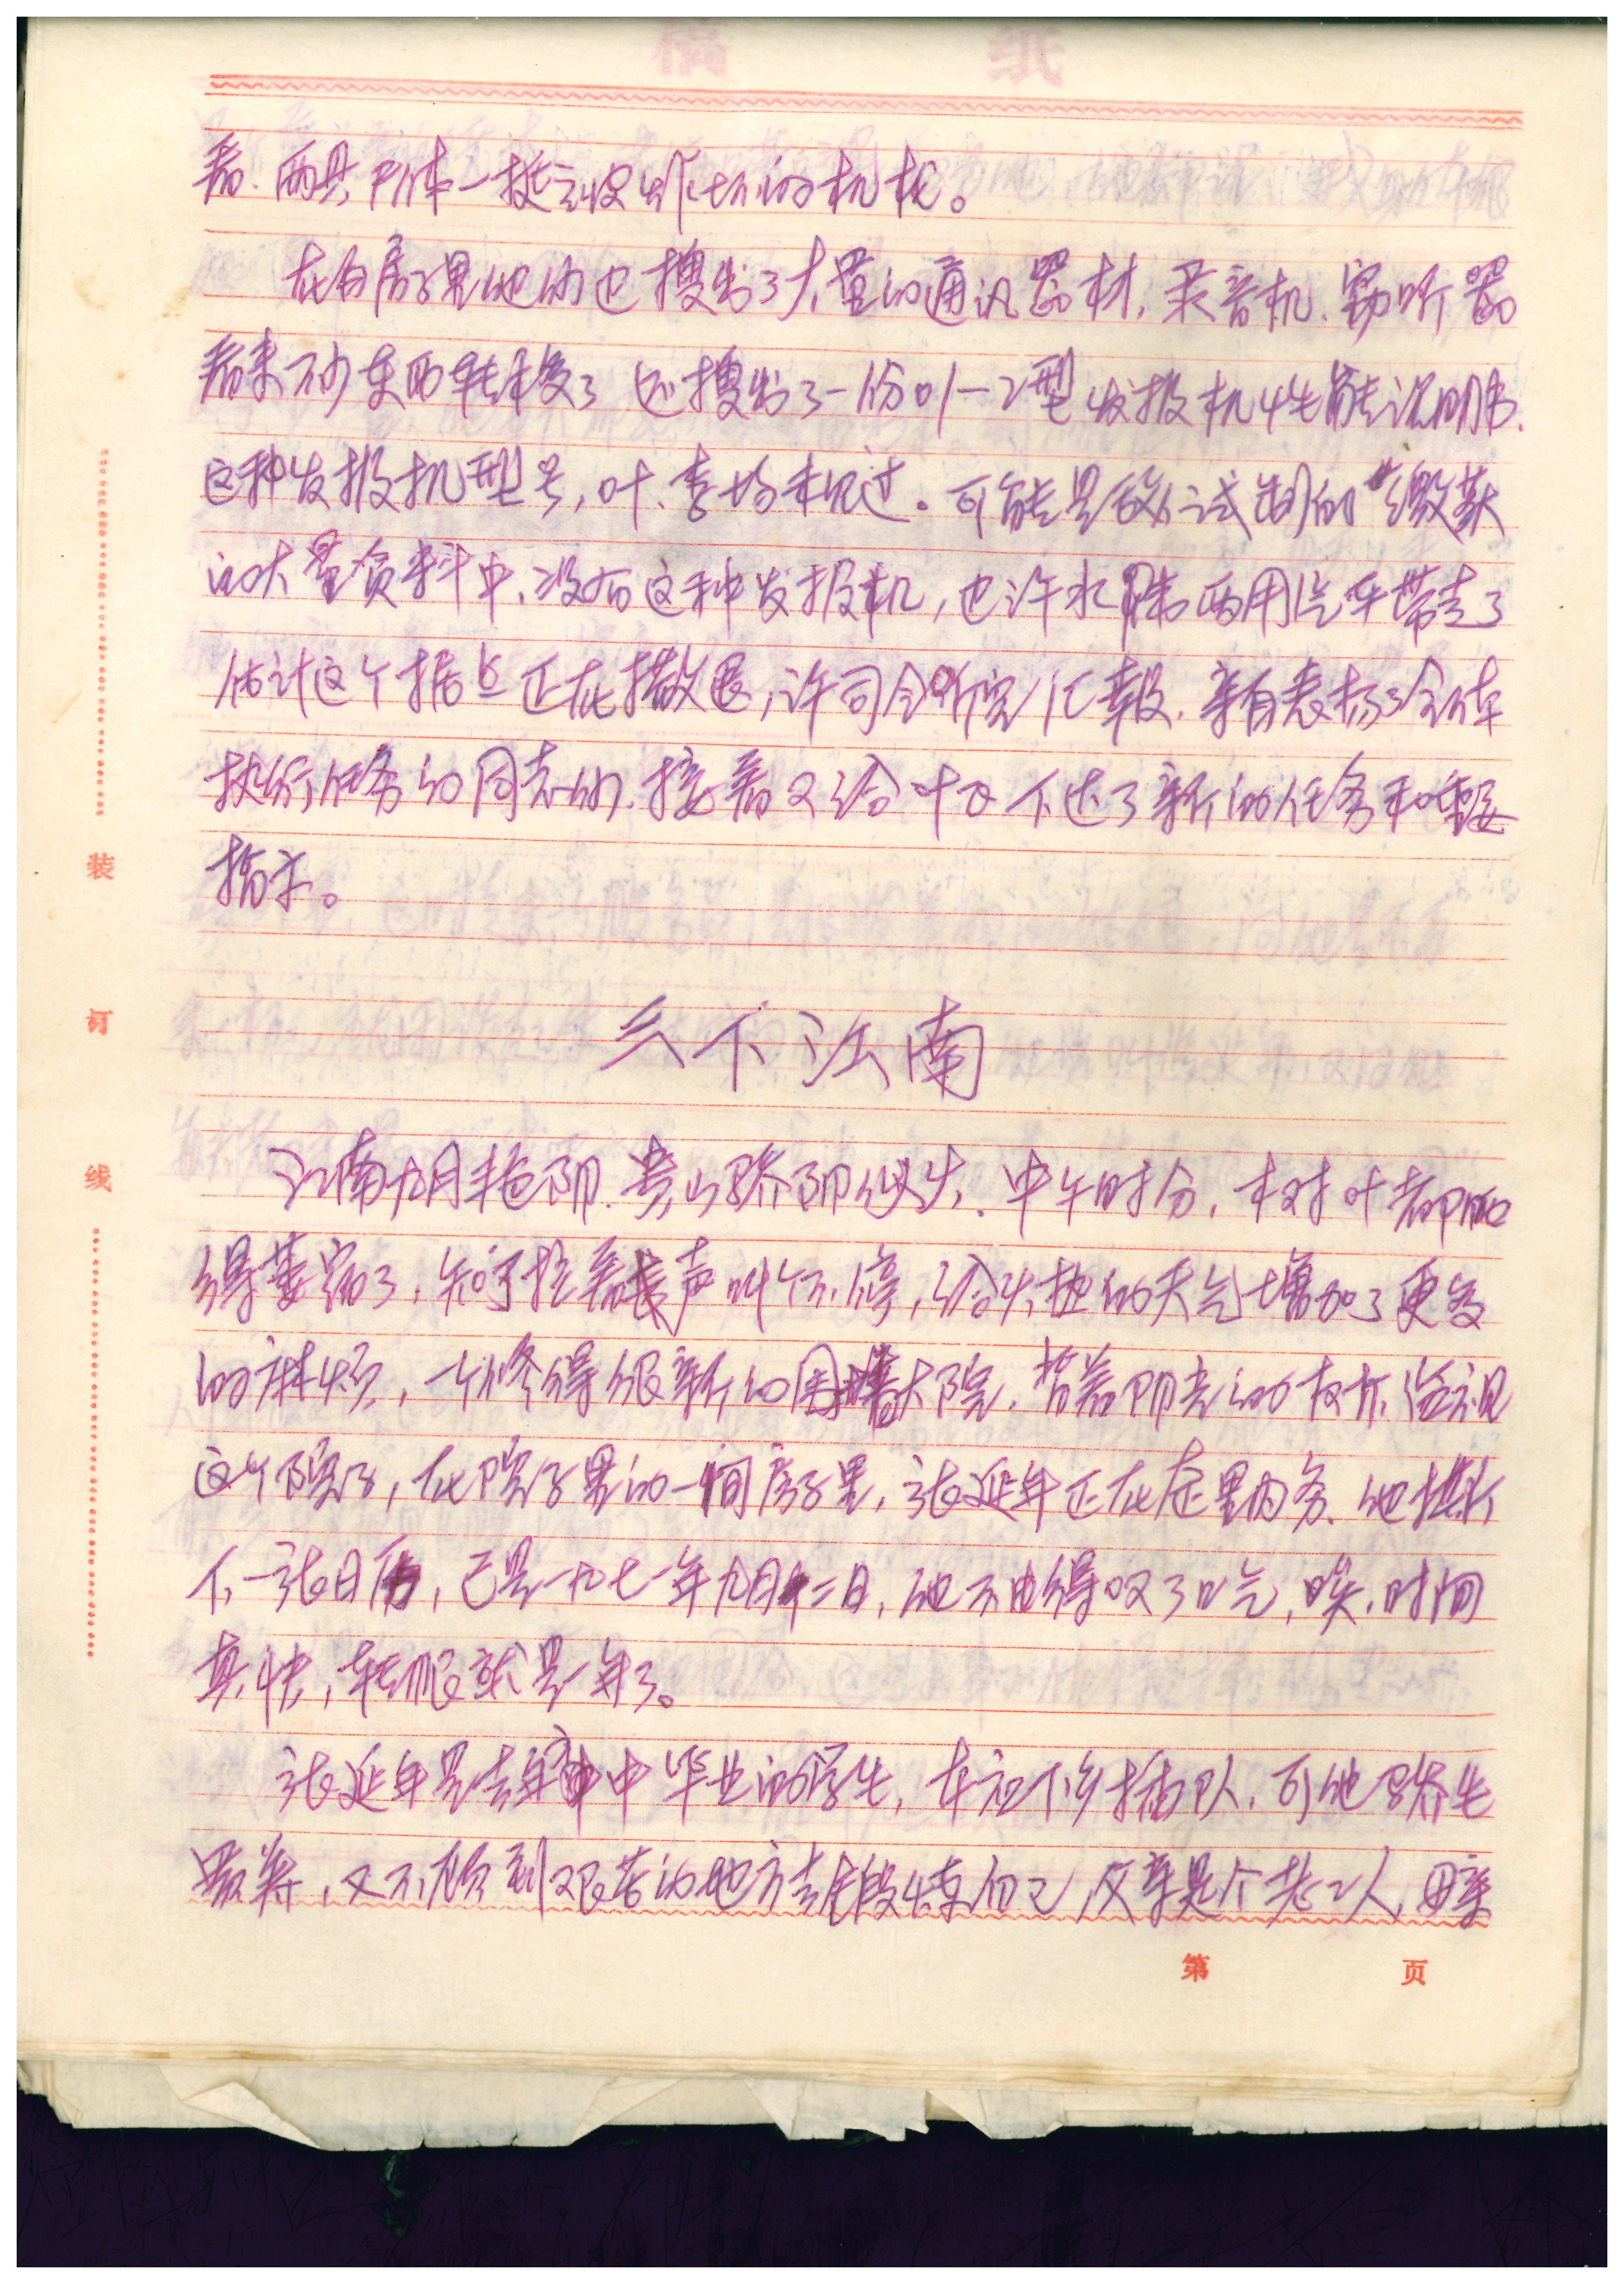 稿 纸
着.两具尸体一挺被炸坏的机枪。
在白房子里他们也搜出了大量的通讯器材,录音机.窃听器
看来不少东西转移了 还搜出了一份01一2型发报机性能说明书.
这种发报机型号,叶、李均未见过。可能是敌人试制的 缴获
的大量资料中.没有这种发报机,也许水陆两用汽车带走了
估计这个据点正在撤退,许司令听完汇报.亲自表扬了全体
执行任务的同志们.接着又给叶飞下达了新的任务和重要
指示。
三下江南
江南九月艳阳.黄山骄阳似火.中午时分,树叶都晒
得萎缩了,知了拉着长声叫个不停,给火热的天气增加了更多
的麻烦,一个修得很新的围墙大院.暂着阳光的 监视
这个院子,在院子里的一间房子里,张延年正在整理内务.他撕
下一张日历,已是一九七一年九月十二日,他不由得叹了口气,唉,时间
真快,转眼就是一年了。
张延年是去年高中毕业的学生,本应下乡插队,可他娇生
惯养,又不愿到艰苦的地方去锻炼自己,父亲是个老工人,母亲
装
订
线
第 页